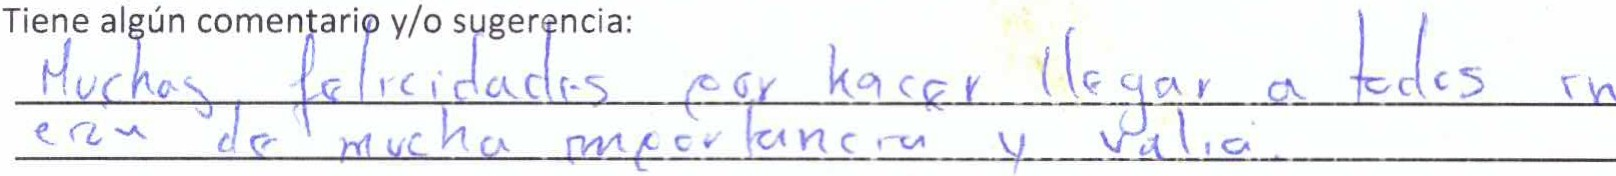 Tiene algún comentario y/o sugerencia:
Muchas felicidades por hacer llegar a todos
de mucha importancia y valia.